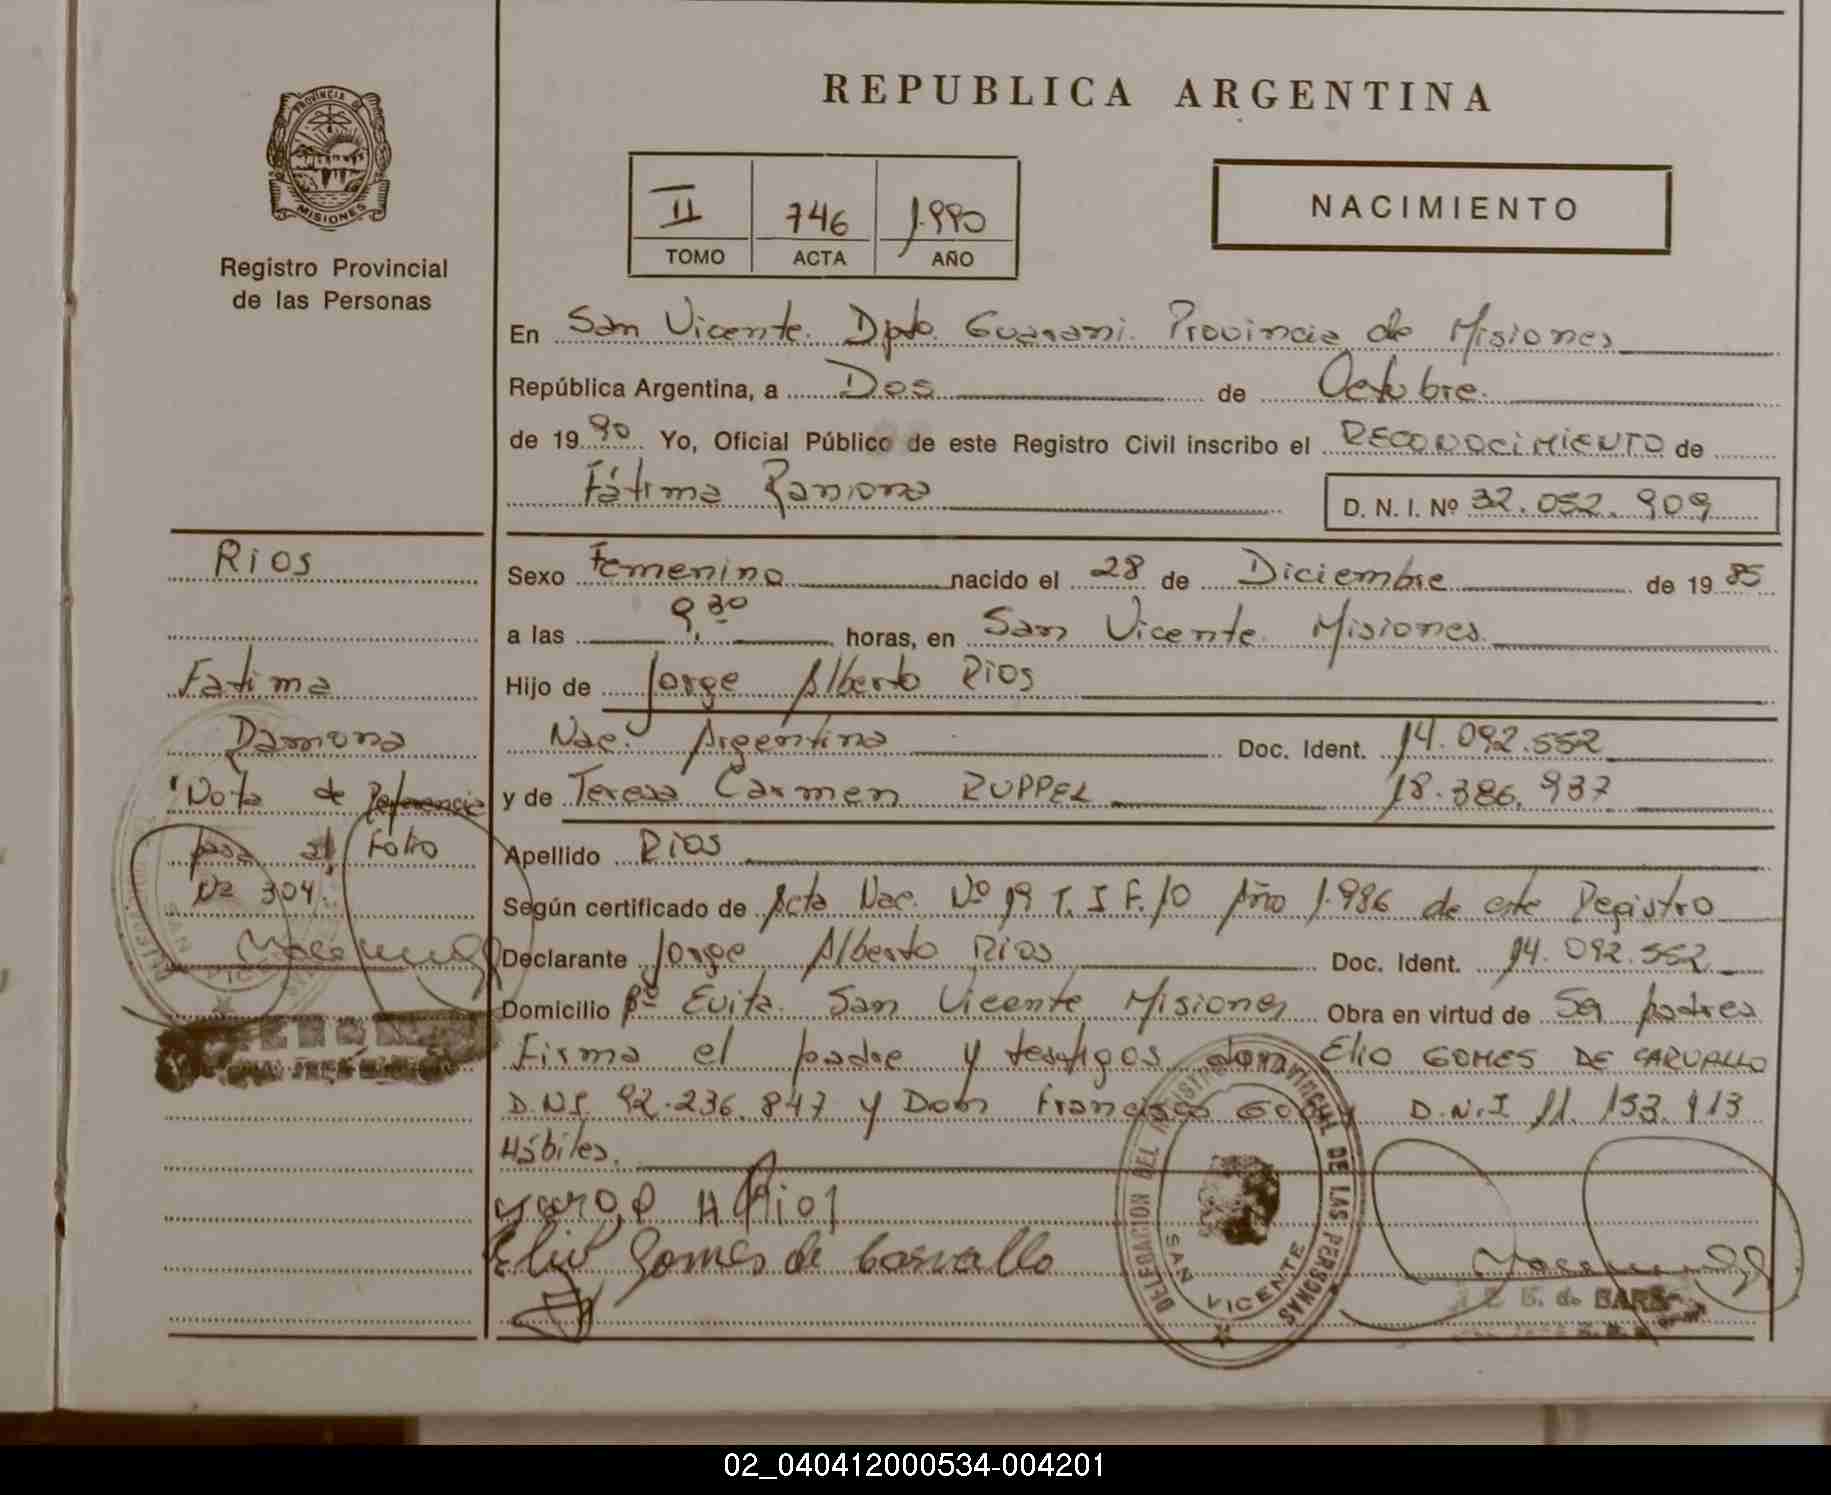 REPUBLICA ARGENTINA
PROVINCIA DE
MISIONES
Registro Provincial
de las Personas
II 746 1.990
TOMO ACTA AÑO
NACIMIENTO
En San Vicente. Dpto. Guarani. Provincia de Misiones
República Argentina, a Dos de Octubre.
de 1990 Yo, Oficial Público de este Registro Civil inscribo el RECONOCIMIENTO de
Fátima Ramona D. N. I. Nº 32.052.909
Rios
Fatima
Ramona
Nota de Referencia
pasa al Folio
Nº 304.
Sexo Femenino nacido el 28 de Diciembre de 1985
a las 9,30 horas, en San Vicente. Misiones.
Hijo de Jorge Alberto Rios
Nac. Argentina Doc. Ident. 14.092.552
y de Teresa Carmen RUPPEL 18.386.937
Apellido Rios
Según certificado de Acta Nac. Nº 19 T. I F. 10 Año 1.986 de este Registro
Declarante Jorge Alberto Rios Doc. Ident. 14.092.552
Domicilio Bº Evita. San Vicente Misiones Obra en virtud de Ser padres
Firma el padre y testigos don Elio GOMES DE CARVALLO
D.N.I. 92.236.847 y Don Francisco D.N.I 11.153.913
Hábiles.
Jorge A Rios
Elio Gomes de Carvallo
DELEGACION DEL REGISTRO PROVINCIAL DE LAS PERSONAS
SAN VICENTE
02_040412000534-004201